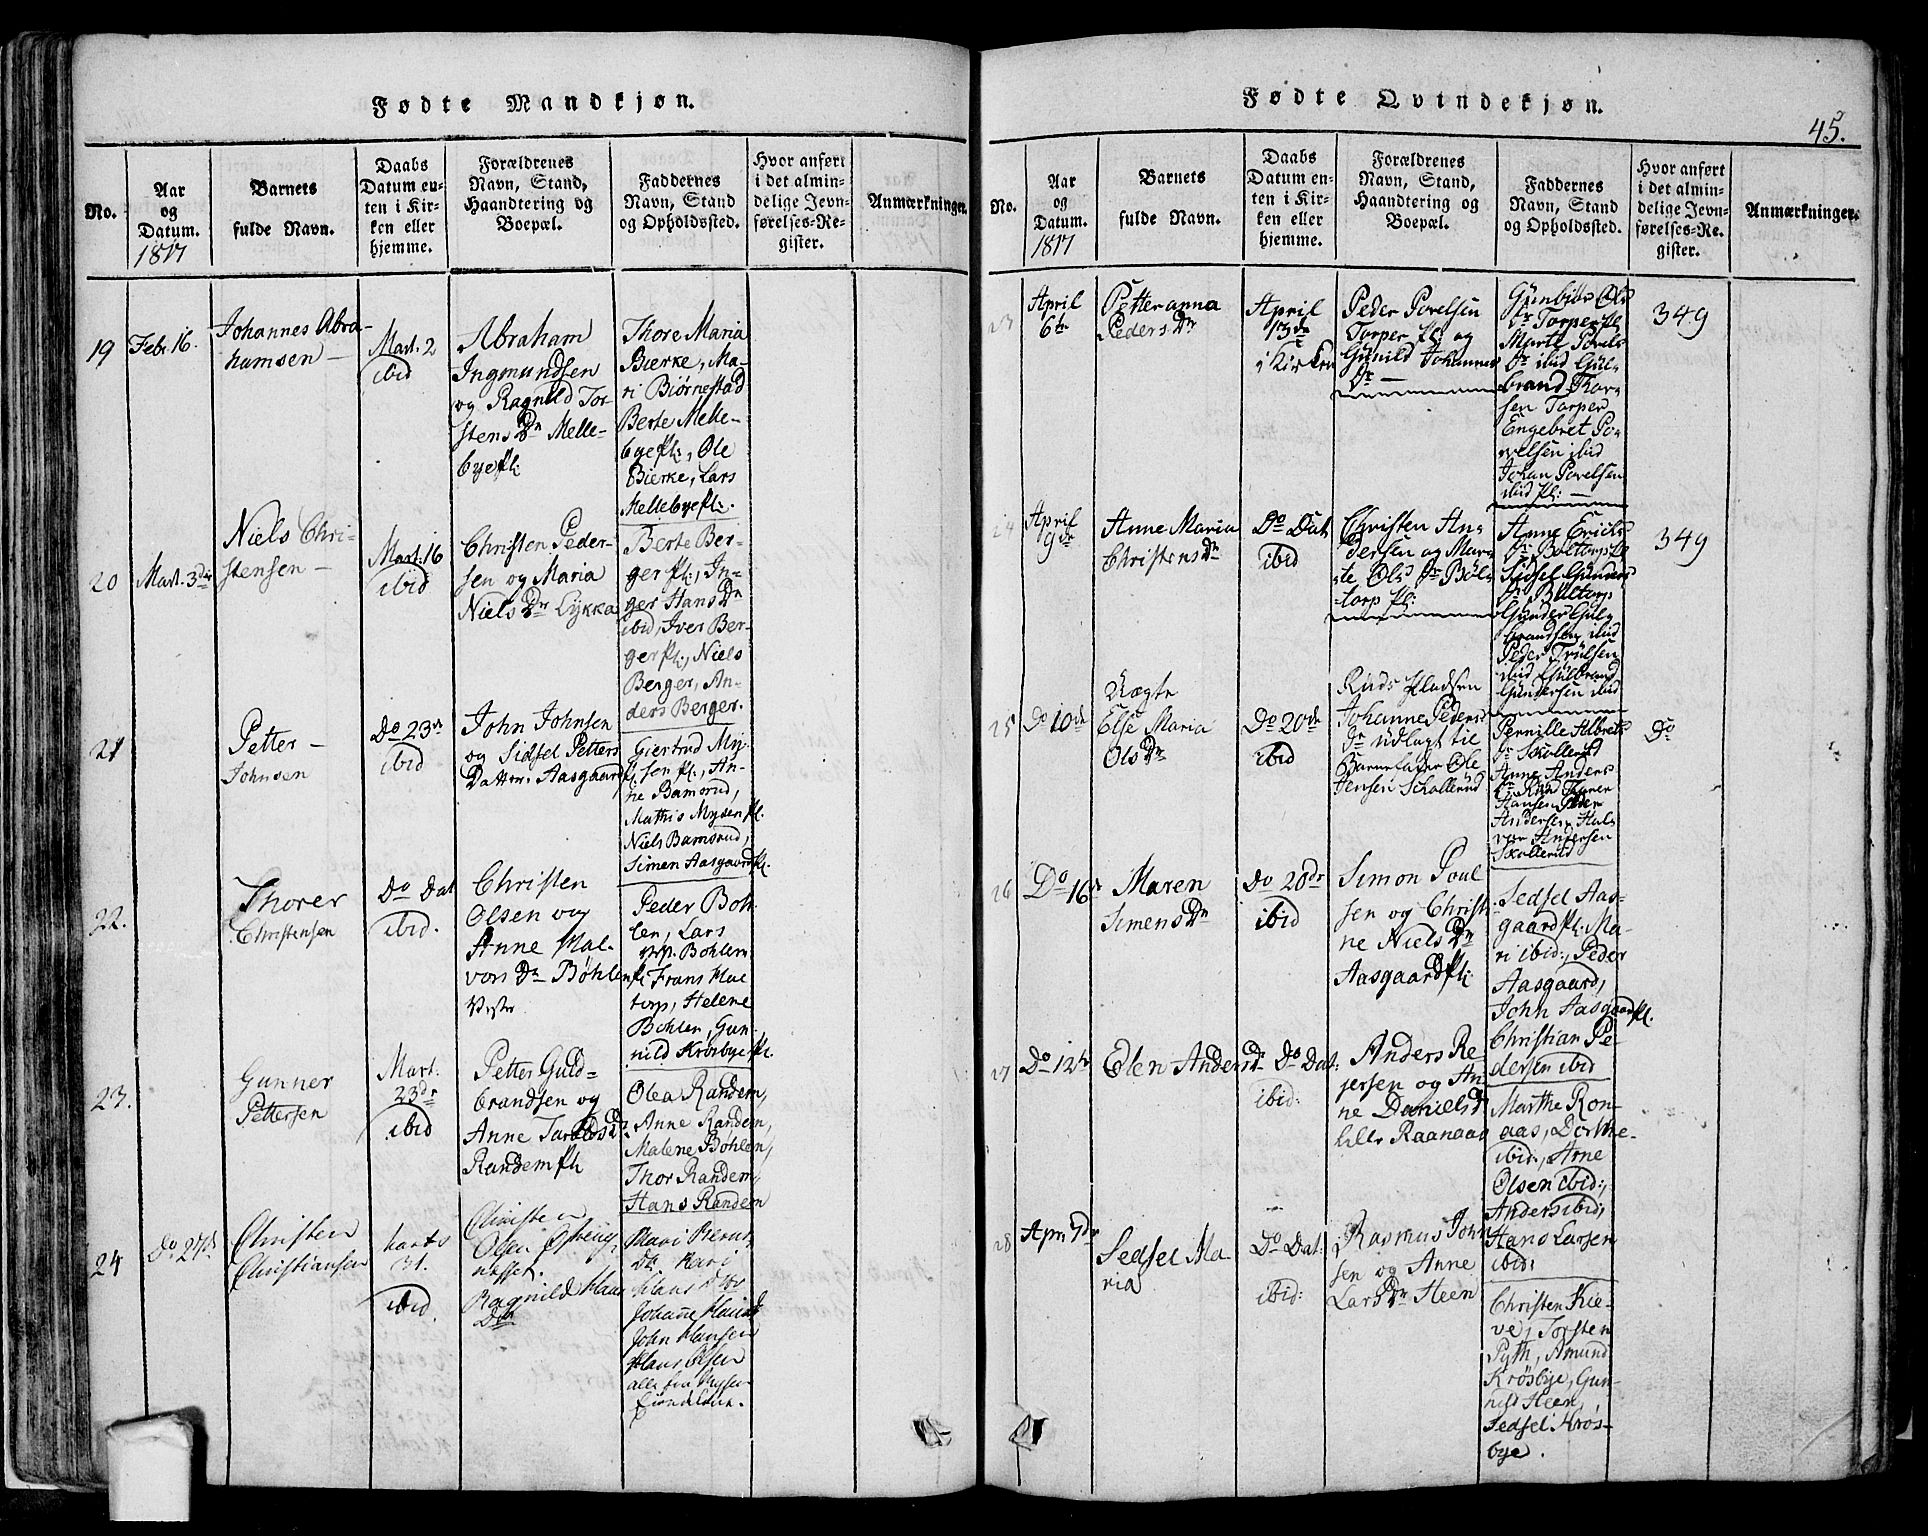 Fødte Mandkjøn.
No.
Aar
og
Datum.
1817
Barnets
fulde Navn.
Daabs
Datum en-
ten i Kir-
ken eller
hjemme.
Forældrenes
Navn, Stand,
Haandtering og
Boepæl.
Faddernes
Navn, Stand
og Opholdssted.
Hvor anført
i det almin-
delige Jevn-
førelses-Re-
gister.
Anmærkninger.
19
Febr. 16.
Johannes Abra-
hamsen —
Mart. 2
ibid
Abraham
Ingmundsen
og Ragnild Tor-
stens Dr Melle-
bye pl:
Thore Maria
Bierke, Ma-
ri Biørnestad
Berte Melle-
bye pl:, Ole
Bierke, Lars
Mellebye pl:.
20
Mart. 3de
Niels Chri-
stensen —
Mart. 16
ibid
Christen Peder-
sen og Maria
Niels Dr Lykka
Berte Ber-
ger pl:, In-
ger Hans Dr
ibid, Iver Ber-
ger pl:, Niels
Berger, An-
ders Berger.
21
Petter —
Johnsen
Do 23de
ibid
John Johnsen
og Sidsel Petters
Datter Aasgaard pl.
Giertrud My-
sen pl:, An-
ne Bamsrud,
Mathis Mysen pl.
Niels Bamsrud,
Simen Aasgaard pl.
22.
Thorer
Christensen
Do Dat
ibid.
Christen
Olsen og
Anne Hal-
vors Dr Bøhlen pl.
Vestre
Peder Boh-
len, Lars
Bohlen
Frans Hal
torp, Helene
Bohlen, Gun-
nild Krosbye pl.
23.
Gunner
Pettersen
Mart.
23de
ibid
Petter Guld-
brandsen og
Anne Taralds Dr.
Randem pl
Olea Randem,
Anne Randem,
Malene Bohlen,
Thor Randem,
Hans Randem
24
Do 27de
Christen
Christiansen
Marts
31.
ibid.
Christen
Olsen
nesset.
Ragnild Hans
Dtr
Mari
Dtr. Kari
Hans Dtr
Johane Hans
John Hansen
Hans Olsen
alle fra Mysen
Eiendelene.
Fødte Qvindekjøn.
45.
No.
Aar
og
Datum.
1817
Barnets
fulde Navn.
Daabs
Datum en-
ten i Kir-
ken eller
hjemme.
Forældrenes
Navn, Stand,
Haandtering og
Boepæl.
Faddernes
Navn, Stand
og Opholdssted.
Hvor anført
i det almin-
delige Jevn-
førelses-Re-
gister.
Anmærkninger.
23
April
6te
Petteranna
Peders Dr
April
13de
i Kirken
Peder Povelsen
Torper pl: og
Gunild Johannes
Dr —
Gunbiør Ols
Dr Torper pl
Marte Povels
Dr ibid Gul-
brand Thor-
sen Torper
Engebret Po-
velsen ibid
Johan Povelsen
ibid pl: —
349
24
April
9de
Anne Maria
Christens Dr
Do Dat
ibid
Christen An-
dersen og Mar-
te Ols Dr Böl-
torp pl:
Anne Erichs
Dr Boltorp pl
Sidsel Gunders
Dr Bültorp
Gunder Gul-
brandsen ibid
Peder Trülsen
ibid Gulbrand
Gundersen ibid
349
25
Do 10de
Uægte
Else Maria
Ols Dr
Do 20de
ibid
Ruds Pladsen
Johanne Peders
Dr udlagt til
Barnefader Ole
Jensen Skollerud
Pernille Albrets
Dr Skollerud
Anne Anders
Dr Rud Thorer
Hansen Peder
Andersen Hal-
vor Andersen
Skollerud
Do
26
Do 16de
Maren
Simens Dr
Do 20de
ibid
Simon Poul
sen og Christi
ne Niels Dr
Aasgaard pl:
Sedsel Aas-
gaard pl: Ma-
ri ibid:, Peder
Aasgaard,
John Aasgaard pl.
Christian Pe-
dersen ibid
27
Do 12te
Elen Anders Dr
Do Dat:
ibid:
Anders Re-
jersen og An
ne Daniels Dr
Lille Raanaas
Marthe Ron-
aas, Dorthe
ibid:, Arne
Olsen ibid:,
Anders ibid,
Hans Larsen
ibid:
28
Apr: 7de
Sedsel Ma
ria
Do Dat:
ibid:
Rasmus John
sen og Anne
Lars Dr Heen
Christen Kie-
ve, Torsten
Pyth, Amund
Krösbye, Gun-
nild Heen,
Sedsel Krös-
bye.